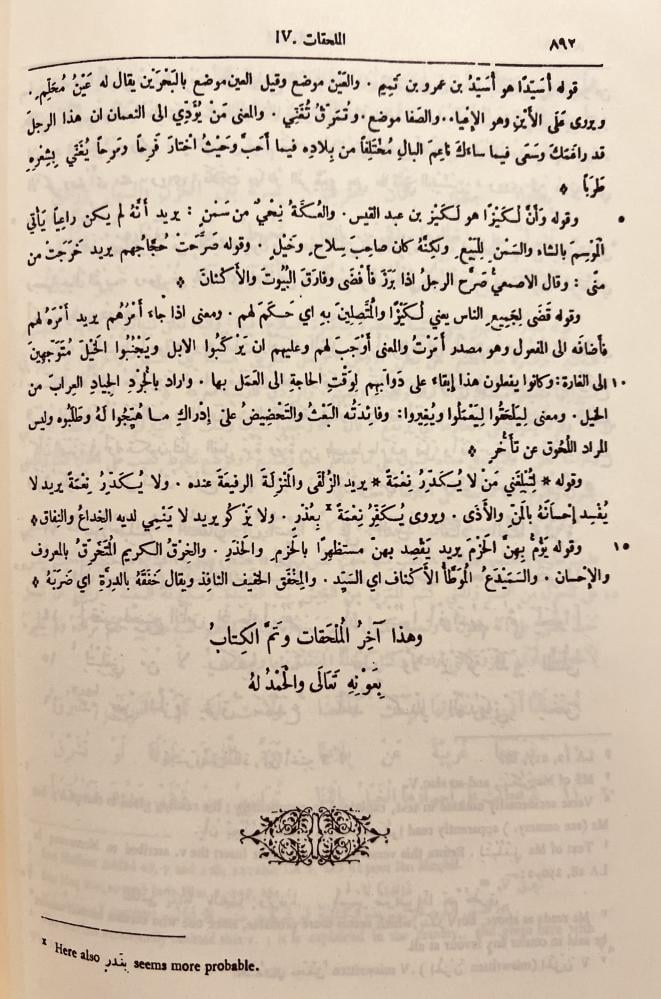 ٨٩٢ الملحقات .IV
قوله أسَيِّدًا هو أُسَيِّدُ بن عمرو بن تَمِيم . والعَيْن موضع وقيل العين موضع بالبَحْرَيْن يقال له عَيْنُ مُحَلِّمٍ .
ويروى عَلَى الأَيْنِ وهو الإعياء. والصفا موضع. وتُمَزِّقُ تُغَنِّي . والمعنى مَنْ يُؤَدِّي الى النعمان ان هذا الرجلَ
قد راغَمَكَ وسَعَى فيما ساءك نَاعِمَ البالِ مُخْتَلِفاً من بِلادِه فيما أَحَبَّ وحَيْثُ اخْتارَ فَرِحاً ومَرِحاً يُغَنِّي بِشِعْرِهِ
طَرَباً *
٥ وقوله وَأَنَّ لُكَيْزًا هو لُكَيْز بن عبد القيس. والعُكَّةُ نِحْيٌ من سَمْنٍ : يريد أنَّهُ لم يكن راعِياً يَأْتِي
المَوْسِمَ بالشاء والسَمْنِ لِلبَيْعِ ولكِنَّهُ كان صاحِبَ سِلاحٍ وخَيْلٍ . وقوله صَرَّحَتْ حُجَّاجُهم يريد خَرَجَتْ من
مِنًى : وقال الاصمعيُّ صَرَّح الرجلُ اذا بَرَزَ فَأَفْضَى وفارَقَ البُيُوتَ والأَكْنانَ *
وقوله قَضَى لِجَمِيعِ الناس يعني لُكَيْزًا والمُتَّصِلِينَ بِهِ اي حَكَمَ لهم . ومعنى اذا جاءَ أَمْرُهُم يريد أَمْرَهُ لهم
فأضافَه الى المفعول وهو مصدر أَمَرْتُ والمعنى أَوْجَبَ لهم وعليهم ان يَرْكَبُوا الابل ويَجْنُبُوا الخَيْلَ مُتَوَجِّهِينَ
١٠ الى الغارة: وكانوا يفعلون هذا إبْقاء على دَوابِّهِم لِوَقْتِ الحاجة الى العَمَل بها . واراد بالجُرْدِ الجِيادِ العِرابَ من
الخيل . ومعنى لِيَلْحَقُوا لِيَعْمَلُوا ويُغِيرُوا: وفائدتُه البَعْثُ والتَحْضِيضُ علىّ إدْراكِ مـا هُيِّجُوا لَهُ وطَلَبُوه وليس
المراد اللُحوق عن تأخُّرٍ *
وقوله * لِتُبْلِغَنِي مَنْ لا يُكَدِّرُ نِعْمَةً * يريد الزُلْفَى والمَنْزِلَةَ الرفيعَةَ عنده . ولا يُكَدِّرُ نِعْمَةً يريد لا
يُفْسِد إحْسانَهُ بالمَنِّ والأَذَى . ويروى يُكَفِّرُ نِعْمَةً x بِعُذْرٍ . ولا يَزْكُو يريد لا يَنْمِي لديه الخِداعُ والنِفاق *
١٥ وقوله يَؤُمُّ بِهِنَّ الحَزْمَ يريد يَقْصِد بهنّ مستظهِرًا بالحَزْمِ والحَذَرِ . والخِرْقُ الكريم المُتَخَرِّقُ بالمعروف
والإحسان . والسَمَيْدَعُ المُوَطَّأُ الأَكْنافِ اي السَيِّد . والمِخْفَق الخفيف النافِذ ويقال خَفَقَهُ بالدِرَّةِ اي ضَرَبَهُ *
وهذا آخِرُ المُلْحَقات وتَمَّ الكِتابُ
بِعَوْنِهِ تَعَالَى والحَمْدُ لهُ
x Here also بِنَدْرٍ seems more probable.